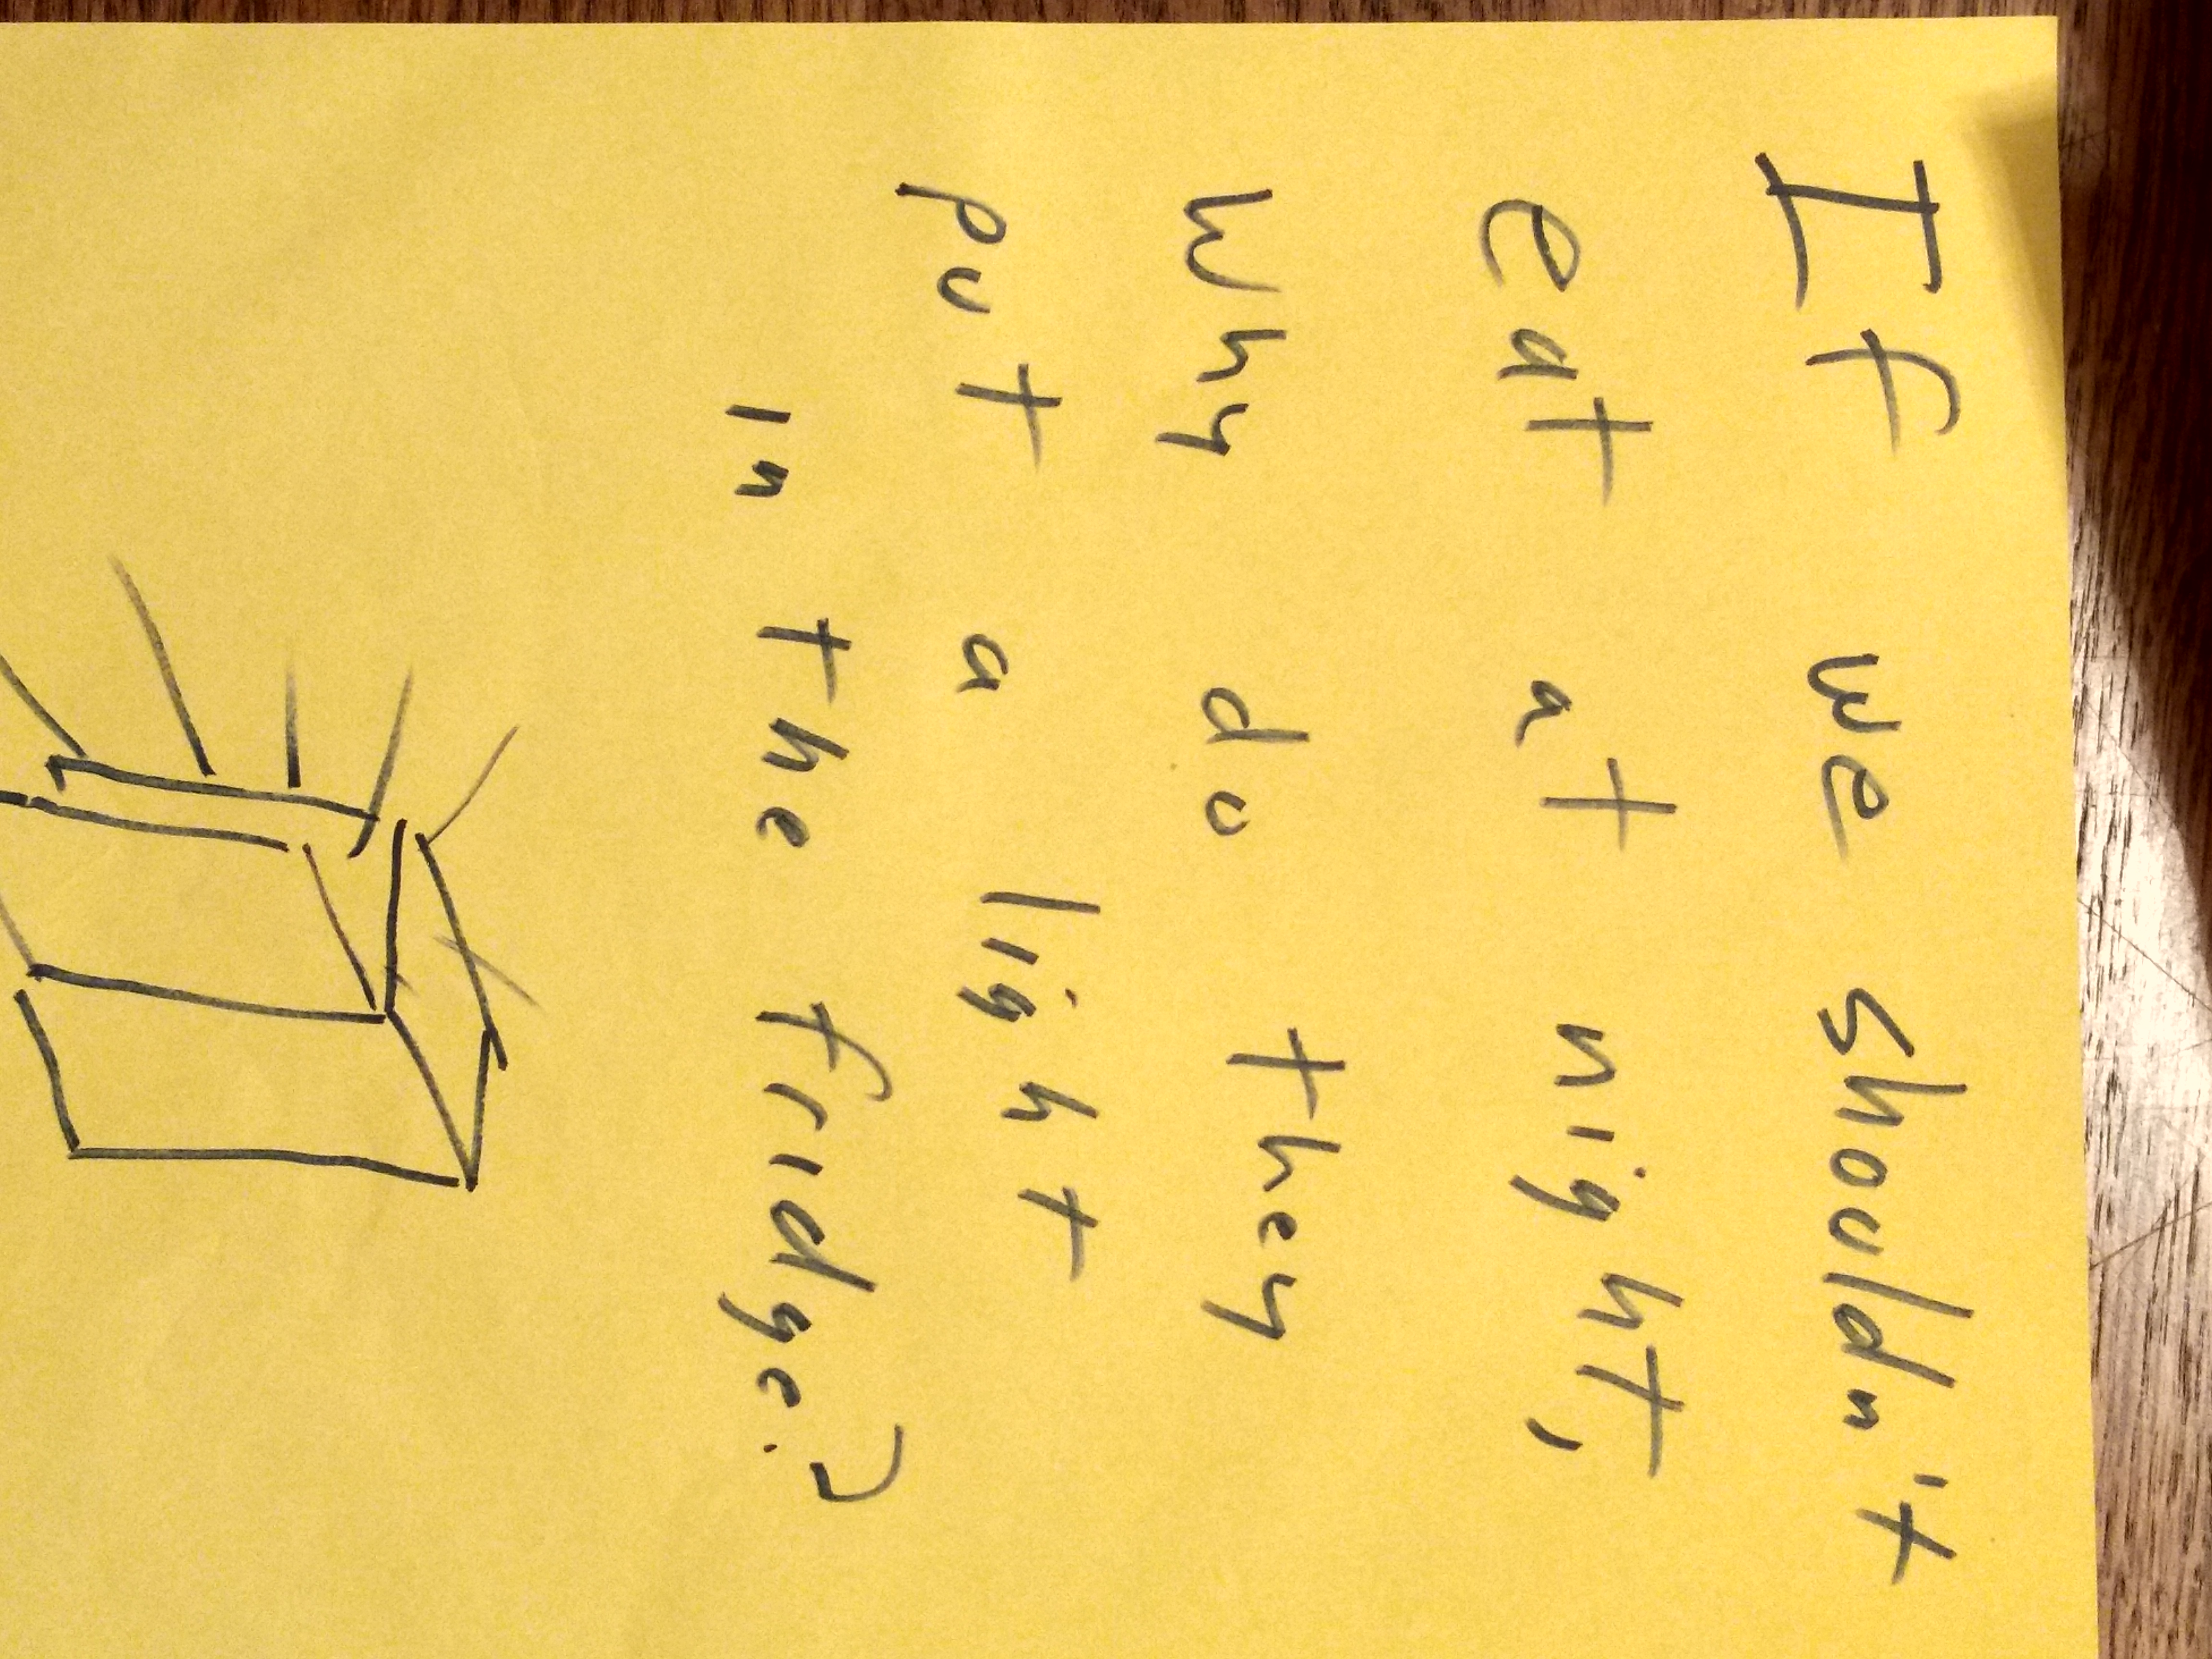 If we shouldn't
eat at night,
why do they
put a light
in the fridge?